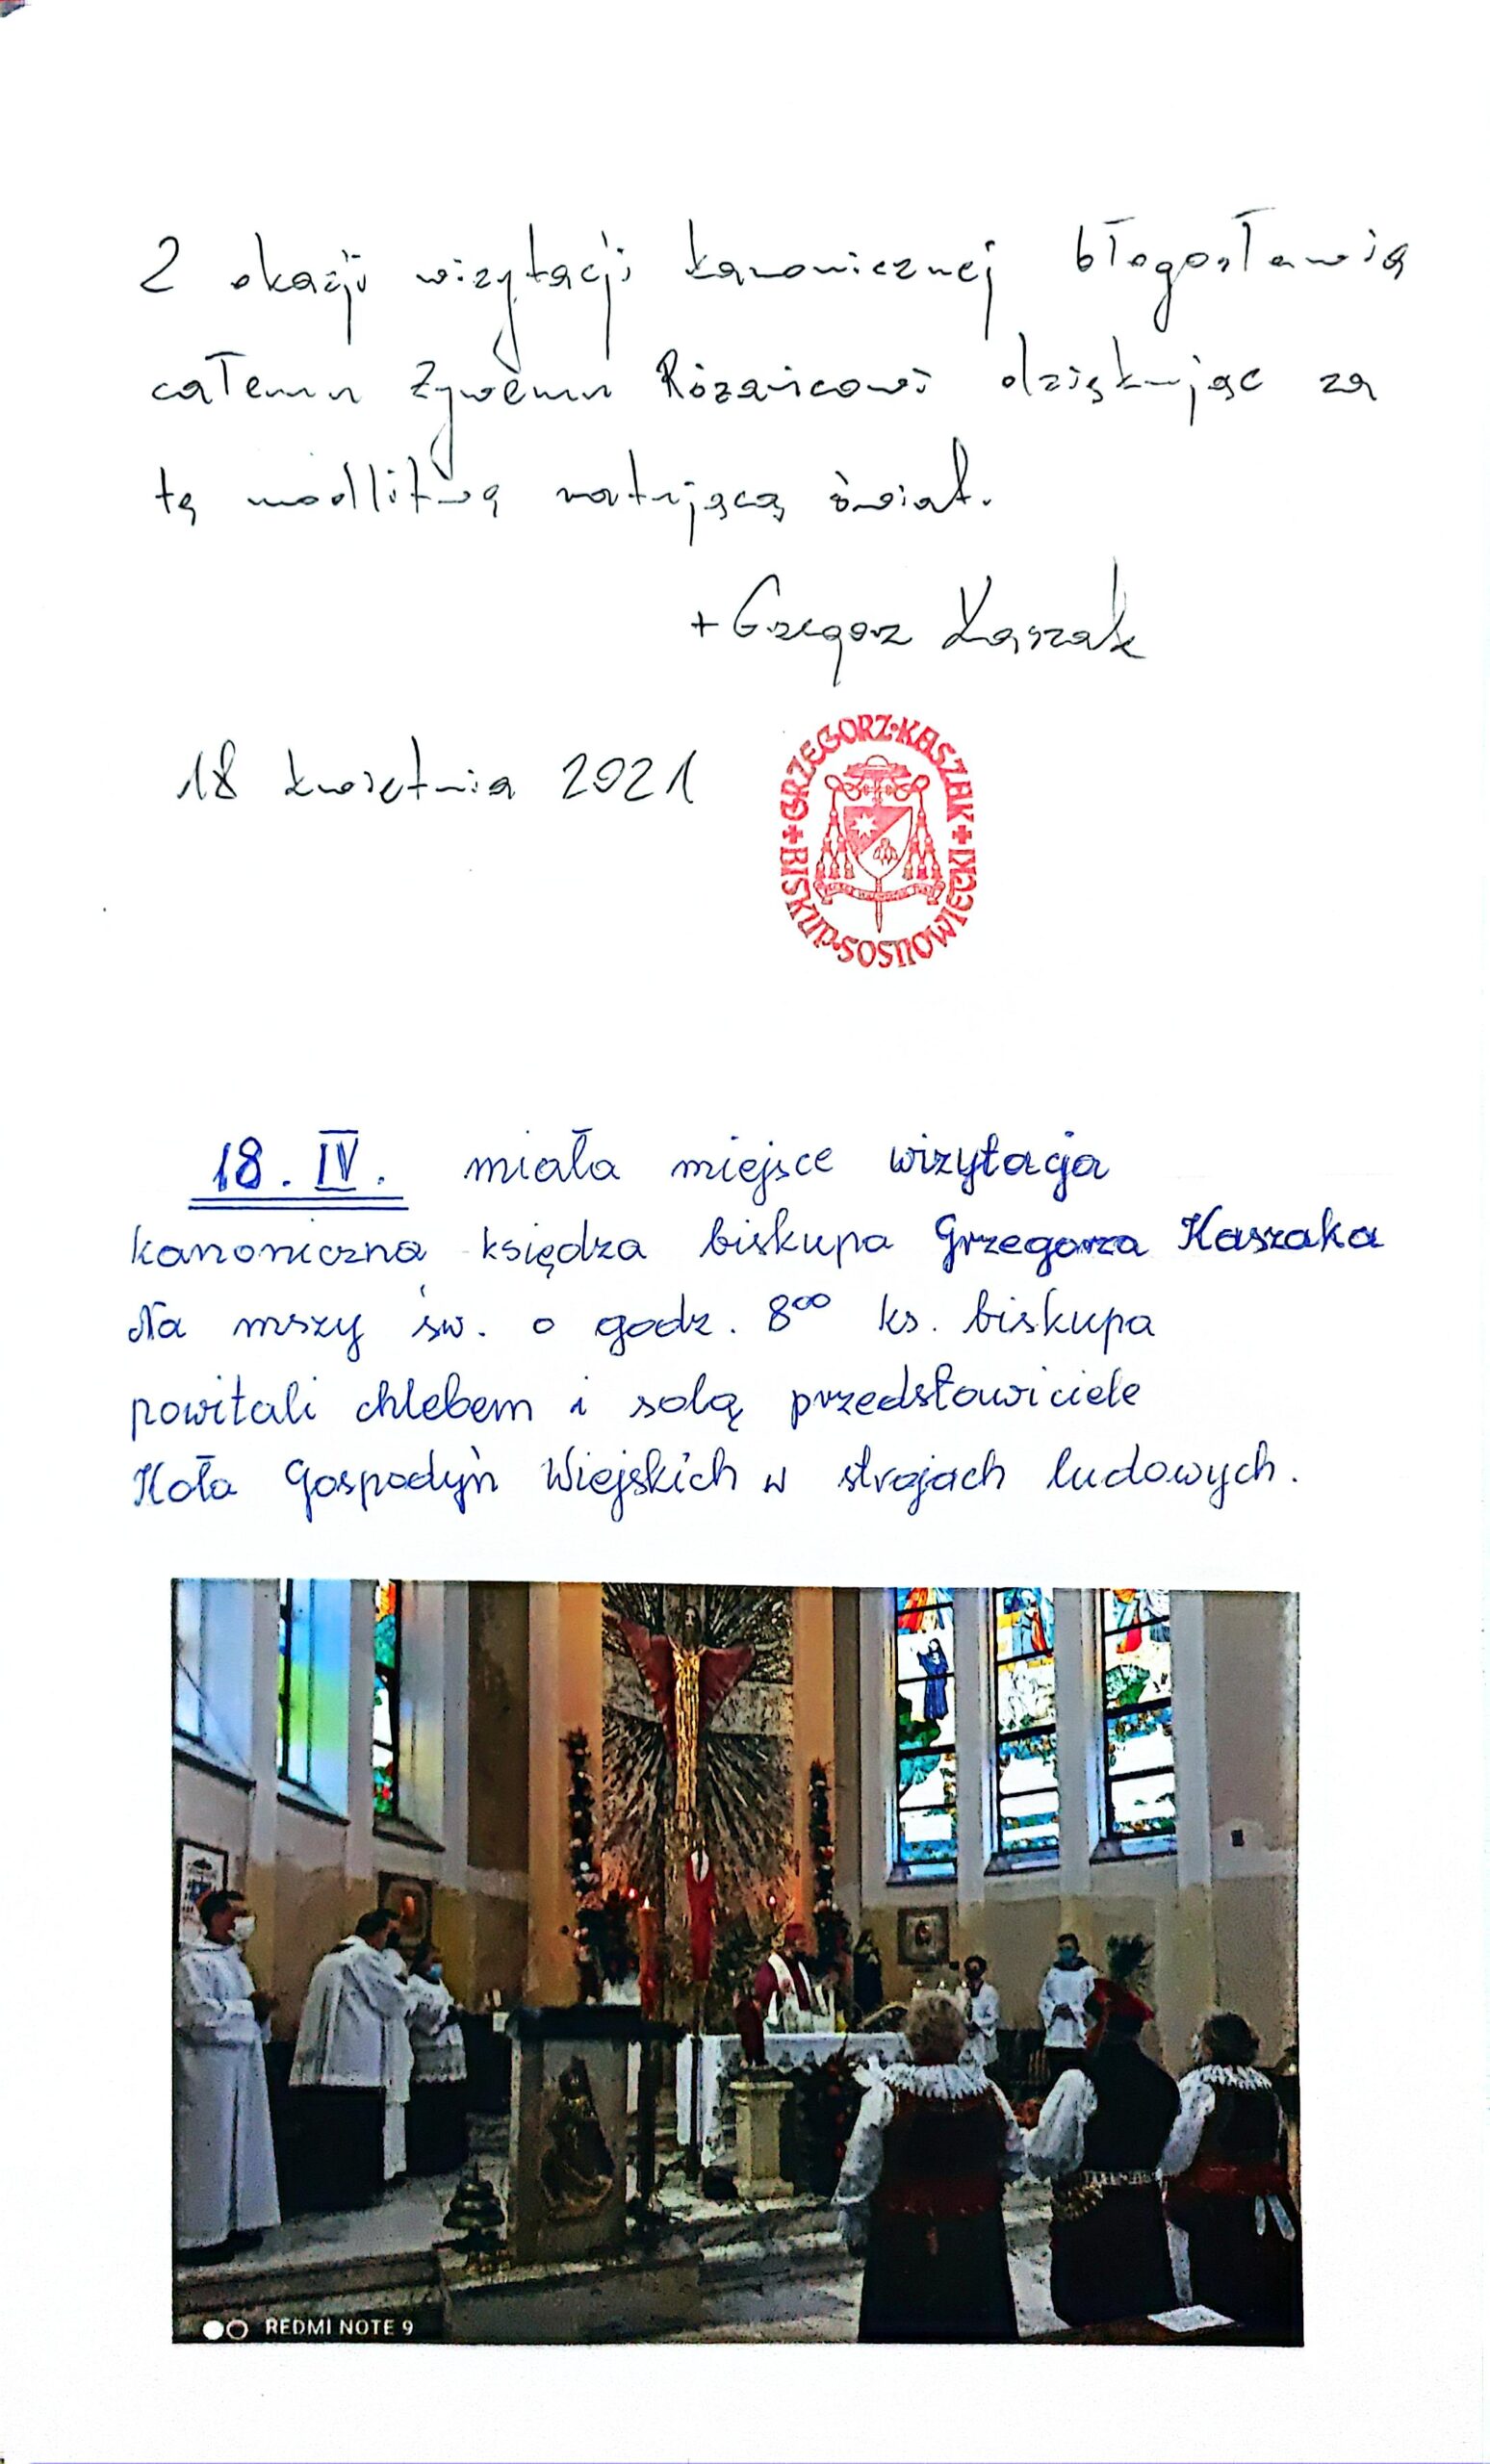 Z okazji wizytacji kanonicznej błogosławię
całemu Żywemu Różańcowi dziękując za
tę modlitwę ratującą świat.
+ Grzegorz Kaszak
18 kwietnia 2021
GRZEGORZ·KASZAK + BISKUP·SOSNOWIECKI +
18. IV. miała miejsce wizytacja
kanoniczna księdza biskupa Grzegorza Kaszaka
Na mszy św. o godz. 8⁰⁰ ks. biskupa
powitali chlebem i solą przedstawiciele
Koła Gospodyń Wiejskich w strojach ludowych.
REDMI NOTE 9